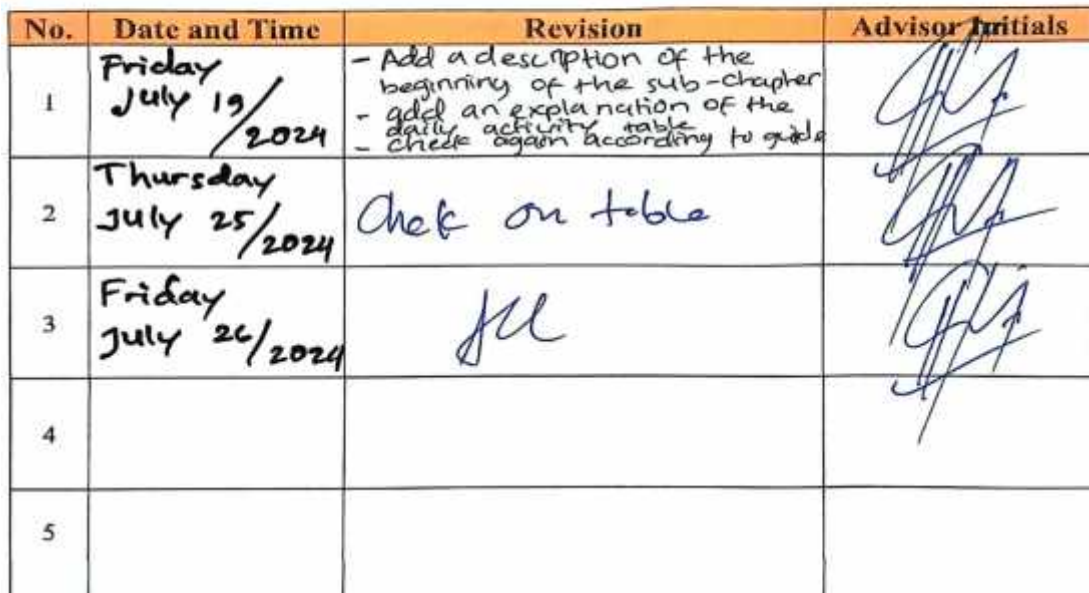 No. Date and Time Revision Advisor Initials
1
Friday
July 19/2024
- Add a description of the
beginning of the sub-chapter
- add an explanation of the
daily activity table
- check again according to guide
2
Thursday
July 25/2024
Chek on table
3
Friday
July 26/2024
4
5